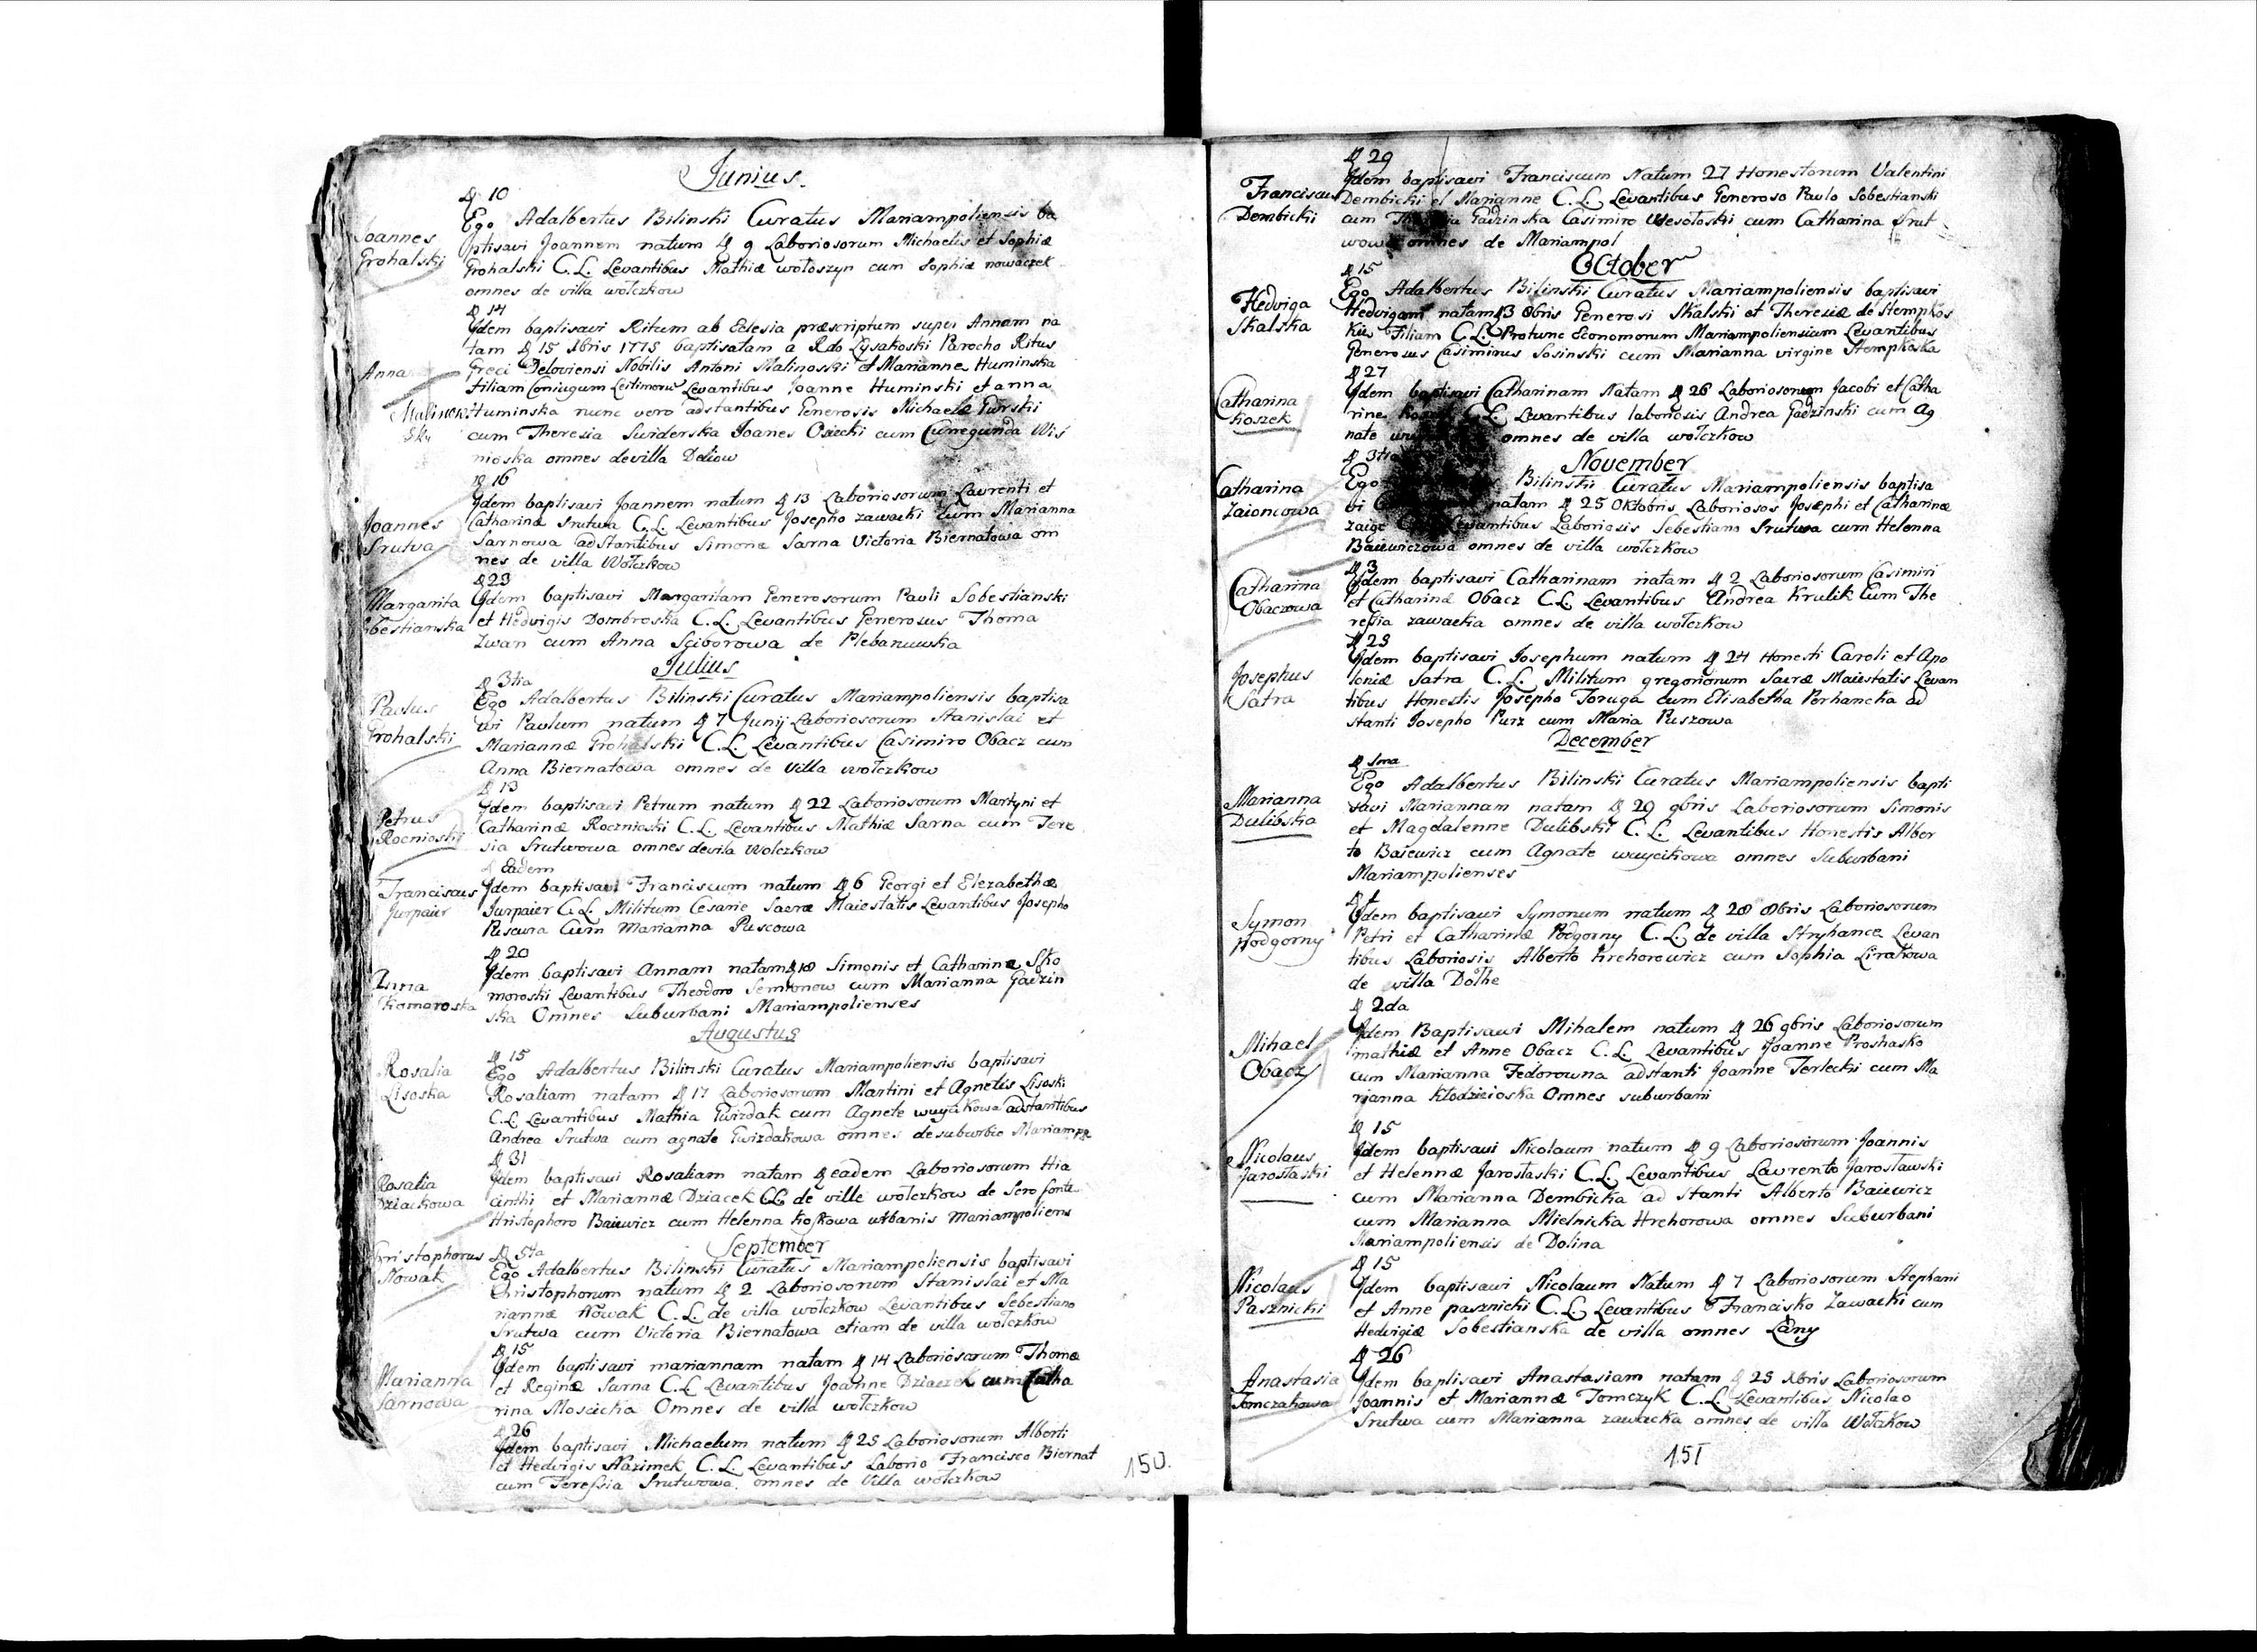 Junius.
D 10
Ego Adalbertus Bilinski Curatus Mariampoliensis ba
Joannes
Grohalski
ptisavi Joannem natum D 9 Laboriosorum Michaelis et Sophiæ
Grohalski C.L. Levantibus Mathiæ wołoszyn cum Sophiæ nowaczek
omnes de villa wołczkow
D 14
Idem baptisavi Ritum ab Eclesia præscriptum super Annam na
tam D 15 Xbris 1775 baptisatam a Rdo Lysakoski Parocho Ritus
Anna
Malinow
Sky
Greci Deloviensi Nobilis Antoni Malinoski et Marianne Huminska
Filiam Coniugum Leitimorum Levantibus Joanne Huminski et anna
Huminska nunc vero adstantibus Generosis Michaele Gurski
cum Theresia Swiderska Joanes Osiecki cum Cunegunda Wis
nioska omnes de villa Deliow
D 16
Idem baptisavi Joannem natum D 13 Laboriosorum Laurenti et
Joannes
Srutwa
Catharinæ Srutwa C.L. Levantibus Josepho zawacki cum Marianna
Sarnowa adstantibus Simone Sarna Victoria Biernatowa om
nes de villa Wołczkow
D 23
Margarita
Sobestianska
Idem baptisavi Margaritam Generosorum Pauli Sobestianski
et Hedvigis Dombroska C.L. Levantibus Generosus Thoma
Zwan cum Anna Sciborowa de Plebanuwka
Julius
D 3tia
Paulus
Grohalski
Ego Adalbertus Bilinski Curatus Mariampoliensis baptisa
vi Paulum natum D 7 Junij Laboriosorum Stanislai et
Mariannæ Grohalski C.L. Levantibus Casimiro Obacz cum
Anna Biernatowa omnes de villa wołczkow
D 13
Petrus
Rocnioski
Idem baptisavi Petrum natum D 22 Laboriosorum Martyni et
Catharinæ Rocznioski C.L. Levantibus Mathiæ Sarna cum Tere
sia Srutwowa omnes de vila Wolczkow
D Eadem
Franciscus
Jurpaier
Idem baptisavi Franciscum natum D 6 Georgi et Elezabethæ
Jurpaier C.L. Militum Cesarie Sacræ Maiestatis Levantibus Josepho
Puscura Cum Marianna Puscowa
D 20
Anna
Komaroska
Idem baptisavi Annam natam D 18 Simonis et Catharinæ Sko
moroski Levantibus Theodoro Semionow cum Marianna Gadzin
ska Omnes Suburbani Mariampolienses
Augustus
D 15
Rosalia
Lisoska
Ego Adalbertus Bilinski Curatus Mariampoliensis baptisavi
Rosaliam natam D 17 Laboriosorum Martini et Agnetis Lisoski
C.L. Levantibus Mathia Gwizdak cum Agnete wuycikowa adstantibus
Andrea Srutwa cum agnate Gwizdakowa omnes de suburbio Mariampo
D 31
Rosalia
Dziackowa
Idem baptisavi Rosaliam natam D eadem Laboriosorum Hia
cinthi et Mariannæ Dziacek CL de ville wołczkow de Sero fonte
Hristophoro Baiewicz cum Helenna Koskowa urbanis Mariampoliens
September
Christophorus
Nowak
D 5ta
Ego Adalbertus Bilinski Curatus Mariampoliensis baptisavi
Christophorum natum D 2 Laboriosorum Stanislai et Ma
riannæ Nowak C.L. de villa wołczkow Levantibus Sebestiano
Srutwa cum Victoria Biernatowa etiam de villa wołczkow
D 15
Marianna
Sarnowa
Idem baptisavi mariannam natam D 14 Laboriosorum Thomæ
et Reginæ Sarna C.L. Levantibus Joanne Dziaczek cum Catha
rina Moscicka Omnes de villa wołczkow
D 26
Idem baptisavi Michaelum natum D 25 Laboriosorum Alberti
et Hedvigis Nazimek C.L. Levantibus Laborio Francisco Biernat
cum Teressia Srutwowa omnes de Villa wołczkow
150.
D 29
Franciscus
Dembicki
Idem baptisavi Franciscum Natum 27 Honestorum Valentini
Dembicki et Marianne C.L. Levantibus Generoso Paulo Sobestianski
cum Gadzinska Casimiro Wesołoski cum Catharina Srut
wowa omnes de Mariampol
October
D 15
Hedviga
Skalska
Ego Adalbertus Bilinski Curatus Mariampoliensis baptisavi
Hedvigam natam D 3 8bris Generosi Skalski et Theresiæ de Stempkos
kis Filiam C.L. Protunc Economorum Mariampoliensium Levantibus
Generosus Casiminus Sosinski cum Marianna virgine Stempkoska
D 27
Catharina
Koszek
Idem baptisavi Catharinam Natam D 26 Laboriosorum Jacobi et Catha
rine C.L. Levantibus laboriosis Andrea Gadzinski cum Ag
nate omnes de villa wołczkow
November
D 3tia
Catharina
Zaioncowa
Ego Bilinski Curatus Mariampoliensis baptisa
vi natam D 25 Oktobris Laboriosos Josephi et Catharinæ
zaigc Levantibus Laboriosis Sebestiano Srutwa cum Helenna
Baiewiczowa omnes de villa wołczkow
D 3
Catharina
Obaczowa
Idem baptisavi Catharinam natam D 2 Laboriosorum Casimiri
et Catharinæ Obacz C.L. Levantibus Andrea Krulik Cum The
ressia zawacka omnes de villa wołczkow
D 25
Josephus
Satra
Idem baptisavi Josephum natum D 24 Honesti Caroli et Apo
loniæ Satra C.L. Militum gregorionum Sacræ Maiestatis Levan
tibus Honestis Josepho Toruga cum Elisabetha Perhancka ad
stanti Josepho Purz cum Maria Puszowa
December
D 1ma
Marianna
Dulibska
Ego Adalbertus Bilinski Curatus Mariampoliensis bapti
savi Mariannam natam D 29 9bris Laboriosorum Simonis
et Magdalenne Dulibski C.L. Levantibus Honestis Alber
to Baiewicz cum Agnate wuycikowa omnes Suburbani
Mariampolienses
Symon
Podgorny
Idem baptisavi Symonum natum D 28 8bris Laboriosorum
Petri et Catharinæ Podgorny C.L. de villa Stryhance Levan
tibus Laboriosis Alberto Krehorowicz cum Sophia Lirakowa
de villa Dołhe
D 2da
Mihael
Obacz
Idem Baptisavi Mihalem natum D 26 9bris Laboriosorum
mathiæ et Anne Obacz C.L. Levantibus Joanne Proshasko
cum Marianna Fedorowna adstanti Joanne Terlecki cum Ma
rianna Kłodzizioska Omnes suburbani
D 15
Nicolaus
Jarosłaski
Idem baptisavi Nicolaum natum D 9 Laboriosorum Joannis
et Helennæ Jarosłaski C.L. Levantibus Laurento Jarosławski
cum Marianna Dembicka ad stanti Alberto Baiewicz
cum Marianna Mielnicka Hrehorowa omnes Suburbani
Mariampoliensis de Dolina
D 15
Nicolaus
Pasznicki
Idem baptisavi Nicolaum Natum D 7 Laboriosorum Stephani
et Anne pasznicki C.L. Levantibus Francisko Zawacki cum
Hedvigiæ Sobestianska de villa omnes Łany
D 26
Anastasia
Tomczakowa
Idem baptisavi Anastasiam natam D 25 Xbris Laboriosorum
Joannis et Mariannæ Tomczyk C.L. Levantibus Nicolao
Srutwa cum Marianna zawacka omnes de villa Wołczkow
151